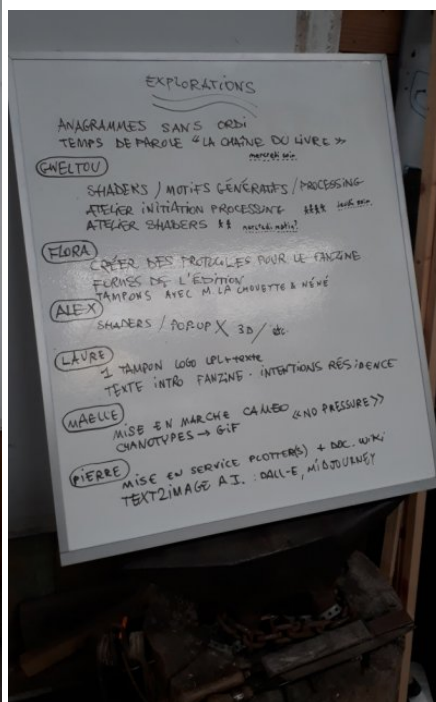 EXPLORATIONS
ANAGRAMMES SANS ORDI
TEMPS DE PAROLE "LA CHAÎNE DU LIVRE"
mercredi soir
GWELTOU
SHADERS / MOTIFS GÉNÉRATIFS / PROCESSING
ATELIER INITIATION PROCESSING
ATELIER SHADERS
FLORA
CRÉER DES PROTOCOLES POUR LE FANZINE
FORMES DE L'ÉDITION
TAMPONS AVEC M. LA CHOUETTE & NÉNÉ
ALEX
SHADERS / POP-UP X 3D / etc
LAURE
1 TAMPON LOGO LPL + texte
TEXTE INTRO FANZINE - INTENTIONS RÉSIDENCE
MAELLE
MISE EN MARCHE CAMEO «NO PRESSURE»
CYANOTYPES → GIF
PIERRE
MISE EN SERVICE PLOTTER(S) + DOC. WIKI
TEXT2IMAGE A.I. : DALL-E, MIDJOURNEY